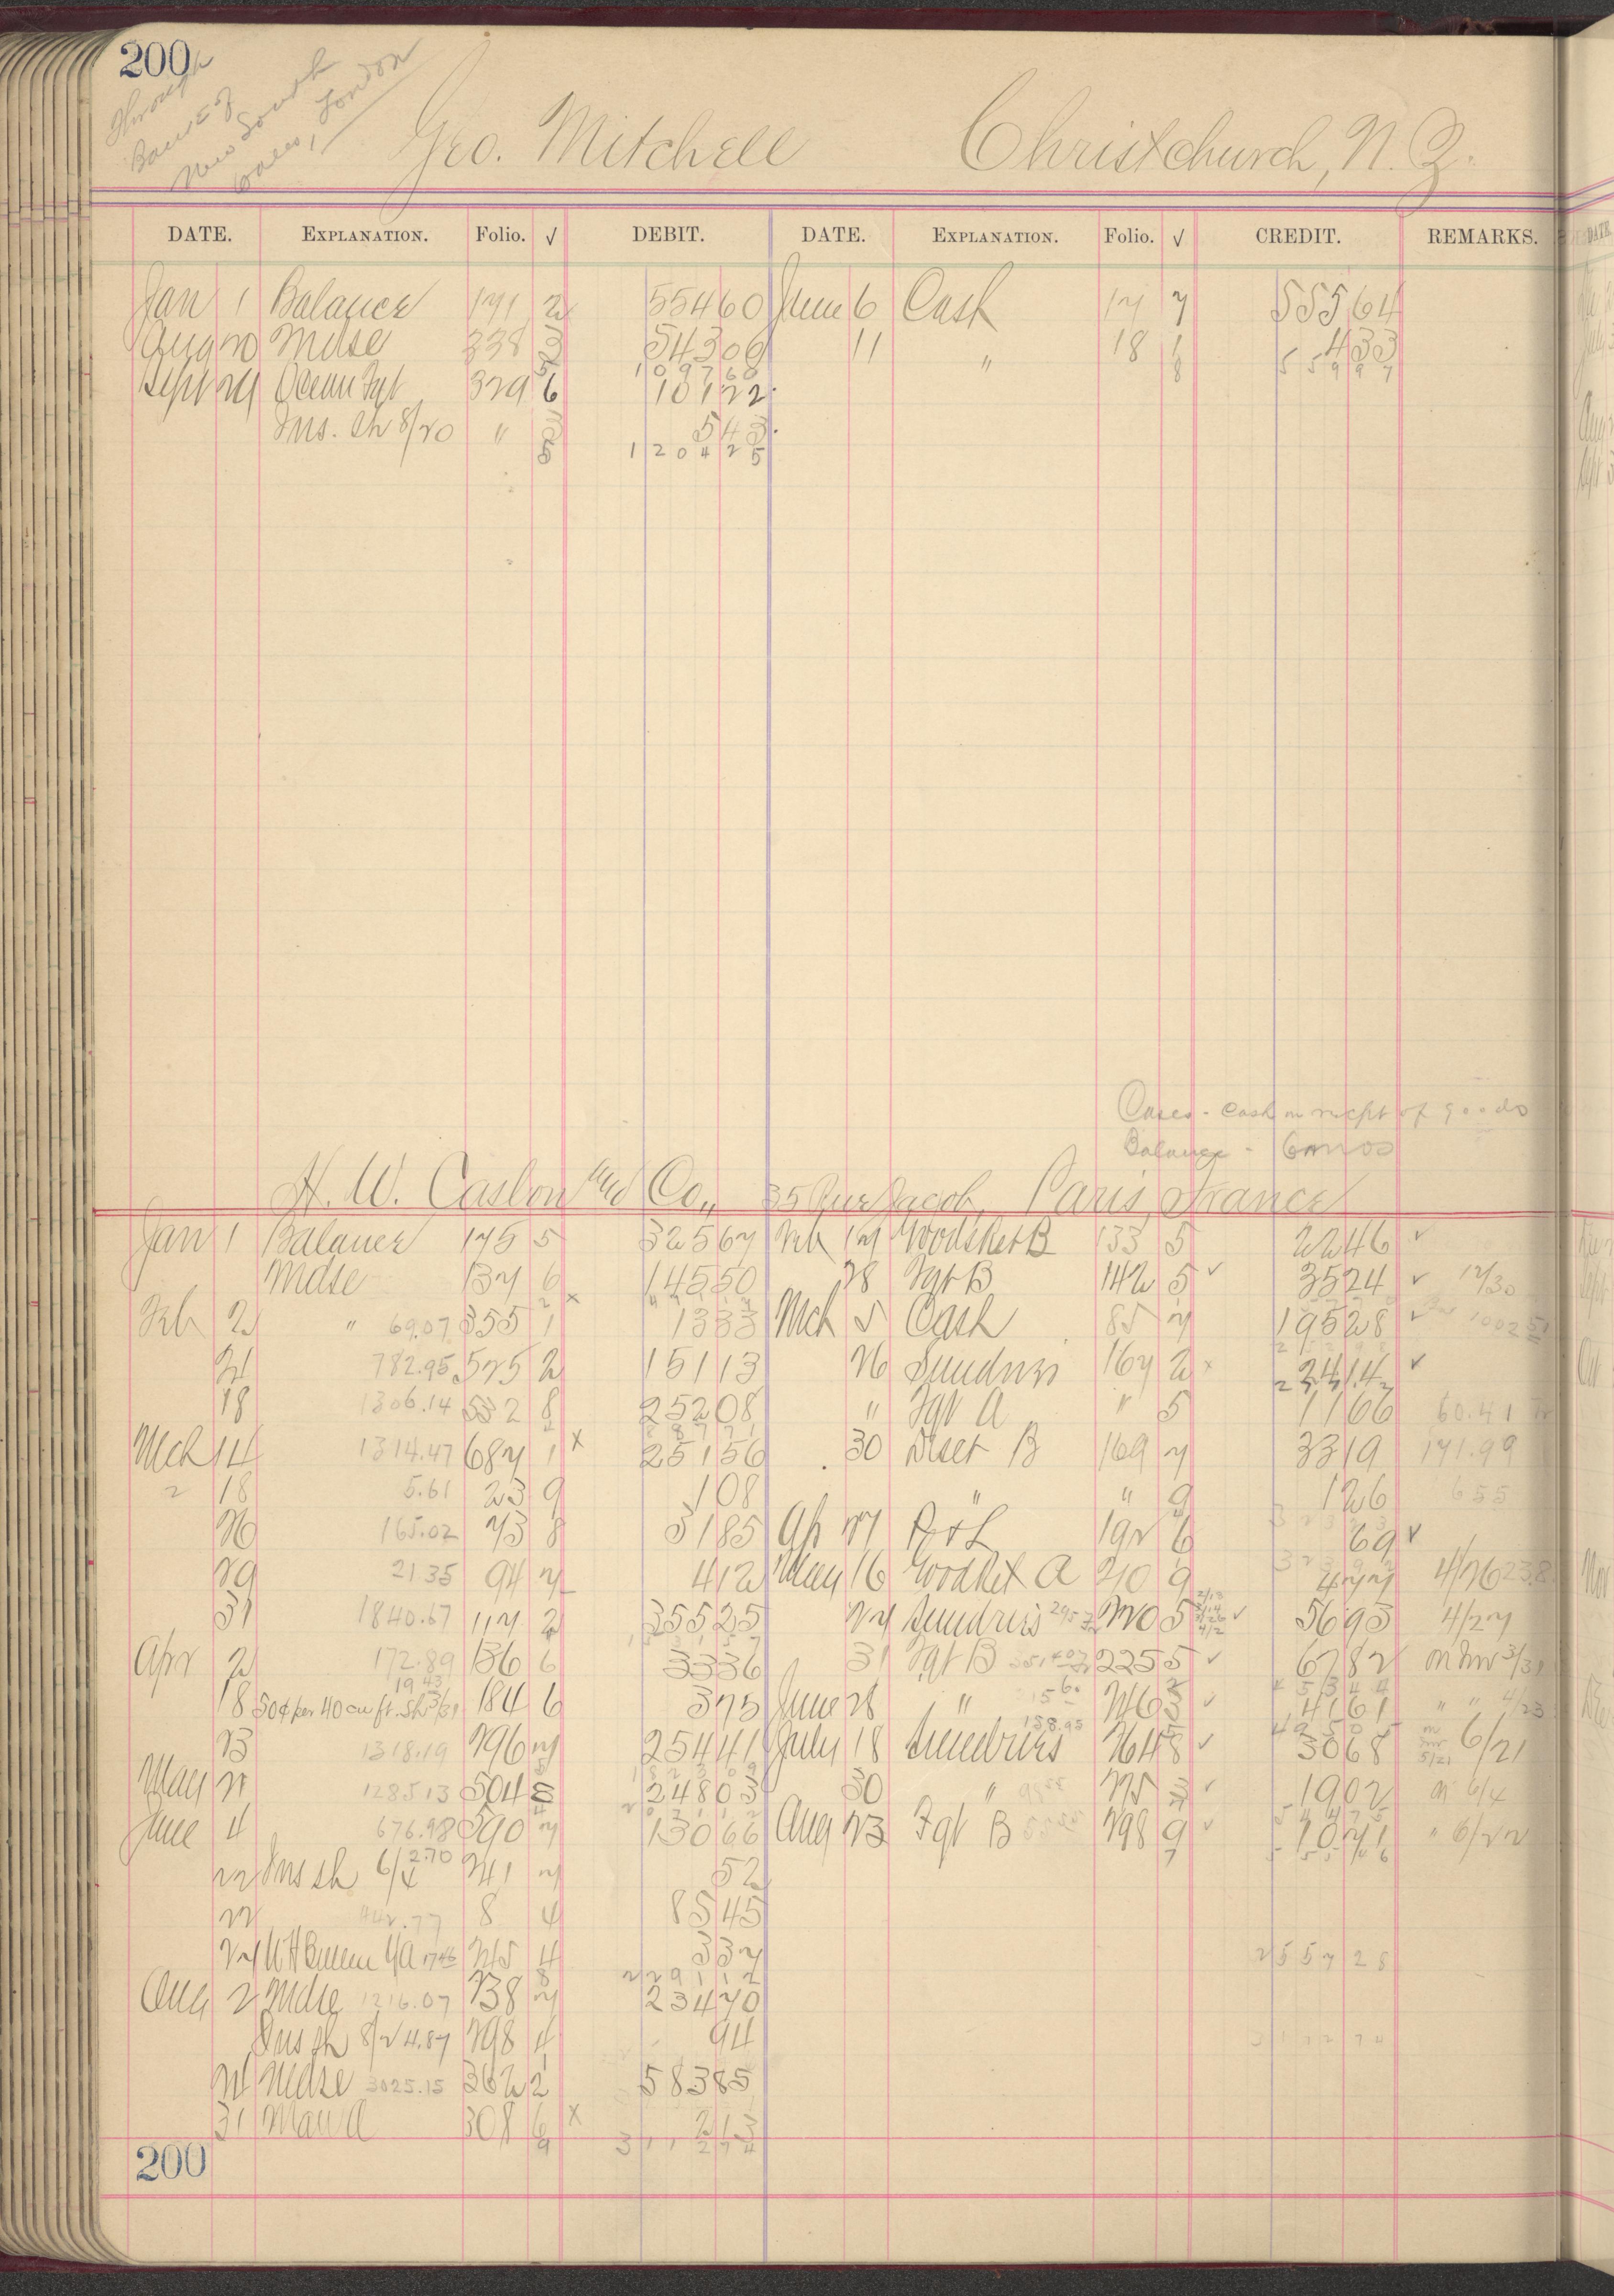 200
Through
Bank of
New South
Wales, London
Geo. Mitchell Christchurch, N.Z.
DATE. EXPLANATION. Folio. √ DEBIT. DATE. EXPLANATION. Folio. √ CREDIT. REMARKS.
Jan 1 Balance 171 2 55460 June 6 Cash 17 7 55564
Aug 20 Mdse 338 54300 11 " 18 1 433
109760 8 55997
Sept 24 Ocean Fgt 329 6 10122
Ins. Sh 8/20 " 543
120425
Cases - Cash on receipt of goods
Balance - 6 mos
H. W. Caslon and Co,, 35 Rue Jacob, Paris France
Jan 1 Balance 175 5 32567 Feb 17 Woodsket B 133 5 2246 √
Mdse 137 6 14550 28 Fgt B 142 5 √ 3524 √ 12/30
Feb 2 " 69.07 355 1 1333 Mch 5 Cash 85 7 19528 √
21 782.95 525 2 15113 26 Sundries 167 2 x 2414 √
18 1306.14 532 8 25208 " Fgt A " 5 1166 60.41
Mch 14 1314.47 687 1 x 25156 30 Disct B 169 7 3319 171.99
18 5.61 23 9 108 " " 9 126 655
26 165.02 73 8 3185 Ap 27 P & L 192 6 69 √
29 21 35 94 7 412 May 16 Woodket A 210 9 477 4/26
31 1840.67 117 2 35525 27 Sundries 220 5 √ 5693 4/27
Apr 2 172.89 136 6 3336 31 Fgt B 225 5 √ 6782 3/31
19 43
18 50¢ per 40 cu ft. Sh 3/31 184 6 375 June 28 " 246 3 √ 4161 " " 4/23
158.95
23 1318.19 296 7 25441 July 18 Sundries 264 8 √ 3068 6/21
May 21 1285 13 504 24803 30 " 275 3 √ 1902 6/4
June 4 676.98 590 7 13066 Aug 23 Fgt B 298 9 √ 1071 " 6/22
22 Ins sh 6/4 2.70 241 7 52
22 442.77 8 4 8545
27 245 4 337 255728
229112
Aug 2 Mdse 1216.07 238 7 23470
Ins sh 8/2 4.87 298 4 94
21 Mdse 3025.15 362 2 58385
31 308 6 x 213
9 311274
200